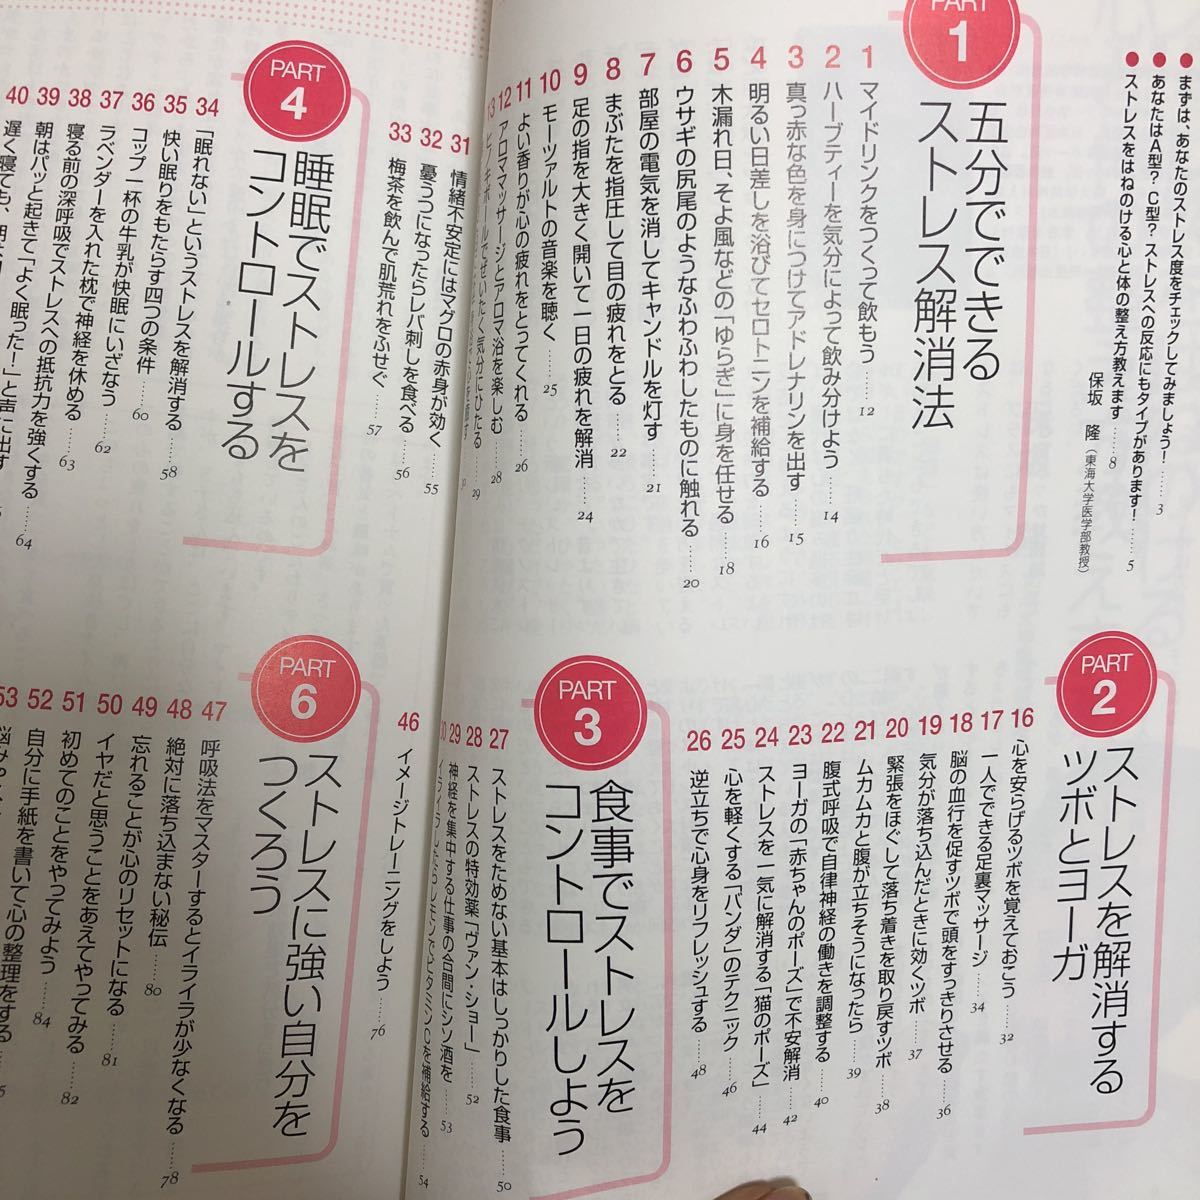 ● まずは、あなたのストレス度をチェックしてみましょう！……3
● あなたはA型？C型？ストレスへの反応にもタイプがあります！……5
● ストレスをはねのける心と体の整え方教えます……8
保坂 隆（東海大学医学部教授）
PART 1
五分でできる
ストレス解消法
1 マイドリンクをつくって飲もう……12
2 ハーブティーを気分によって飲み分けよう……14
3 真っ赤な色を身につけてアドレナリンを出す……15
4 明るい日差しを浴びてセロトニンを補給する……16
5 木漏れ日、そよ風などの「ゆらぎ」に身を任せる……18
6 ウサギの尻尾のようなふわふわしたものに触れる……20
7 部屋の電気を消してキャンドルを灯す……21
8 まぶたを指圧して目の疲れをとる……22
9 足の指を大きく開いて一日の疲れを解消……24
10 モーツァルトの音楽を聴く……25
11 よい香りが心の疲れをとってくれる……26
12 アロママッサージとアロマ浴を楽しむ……28
13 ヒノキボールでぜいたく気分にひたる……29
PART 2
ストレスを解消する
ツボとヨーガ
16 心を安らげるツボを覚えておこう……32
17 一人でできる足裏マッサージ……34
18 脳の血行を促すツボで頭をすっきりさせる……36
19 気分が落ち込んだときに効くツボ……37
20 緊張をほぐして落ち着きを取り戻すツボ……38
21 ムカムカと腹が立ちそうになったら……39
22 腹式呼吸で自律神経の働きを調整する……40
23 ヨーガの「赤ちゃんのポーズ」で不安解消……42
24 ストレスを一気に解消する「猫のポーズ」……44
25 心を軽くする「パンダ」のテクニック……46
26 逆立ちで心身をリフレッシュする……48
PART 3
食事でストレスを
コントロールしよう
27 ストレスをためない基本はしっかりした食事……50
28 ストレスの特効薬「ヴァン・ショー」……52
29 神経を集中する仕事の合間にシソ酒を……53
30 イライラしたらレモンでビタミンCを補給する……54
31 情緒不安定にはマグロの赤身が効く……55
32 憂うつになったらレバ刺しを食べる……56
33 梅茶を飲んで肌荒れをふせぐ……57
PART 4
睡眠でストレスを
コントロールする
34 「眠れない」というストレスを解消する……58
35 快い眠りをもたらす四つの条件……60
36 コップ一杯の牛乳が快眠にいざなう
37 ラベンダーを入れた枕で神経を休める……62
38 寝る前の深呼吸でストレスへの抵抗力を強くする……63
39 朝はパッと起きて「よく眠ったー」と声に出す……64
40 遅く寝ても、
46 イメージトレーニングをしよう……76
PART 6
ストレスに強い自分を
つくろう
47 呼吸法をマスターするとイライラが少なくなる……78
48 絶対に落ち込まない秘伝……80
49 忘れることが心のリセットになる……81
50 イヤだと思うことをあえてやってみる……82
51 初めてのことをやってみよう……84
52 自分に手紙を書いて心の整理をする
53